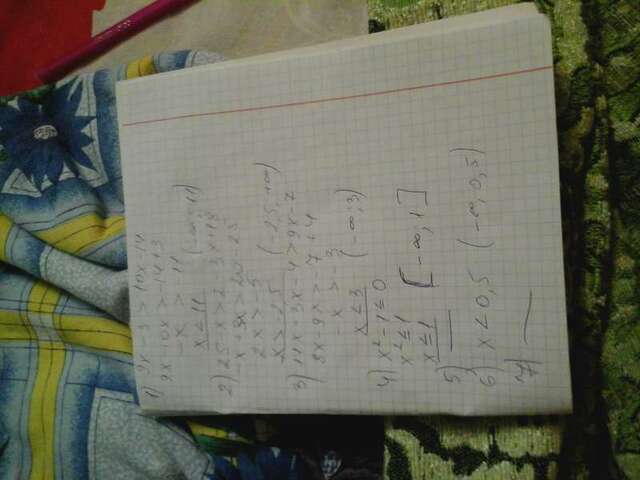 1) 9x - 3 > 10x - 14
9x - 10x > -14 + 3
-x > -11
x < 11 (-∞; 11)
2) 25 - x > 2 - 3x + 18
-x + 3x > 20 - 25
2x > -5
x > -2,5 (-2,5; +∞)
3) 11x - 3x - 4 > 9x - 7
8x - 9x > -7 + 4
-x > -3
x < 3 (-∞; 3)
4) x² - 1 ≤ 0
x² ≤ 1
x ≤ 1 [-∞; 1]
5) —
6) x < 0,5 (-∞, 0,5)
7) —